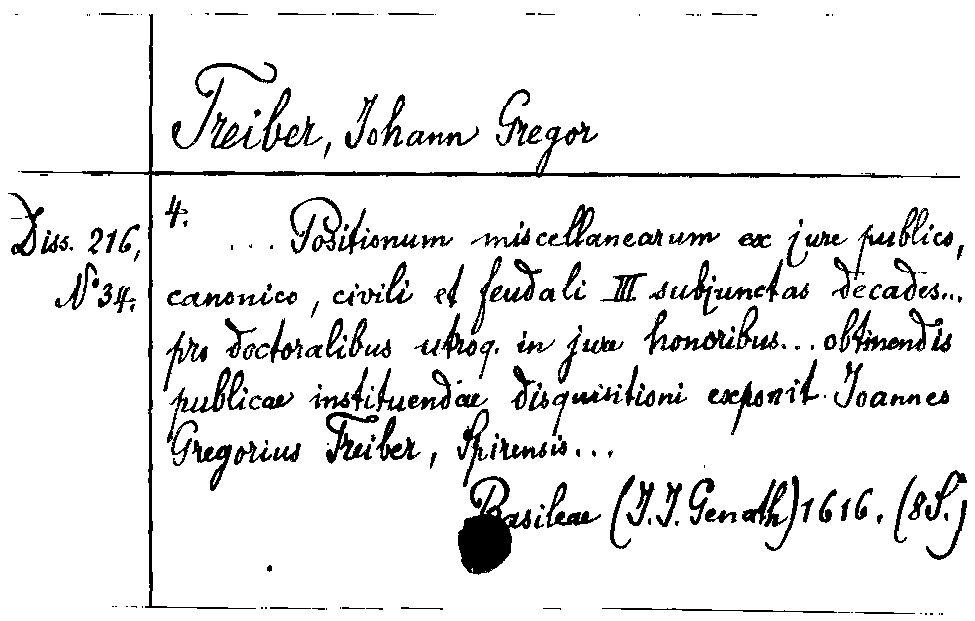 Treiber, Johann Gregor
Diss. 216,
N° 34.
4.
... Positionum miscellanearum ex jure publico,
canonico, civili et feudali III subjunctas decades...
pro doctoralibus utroq. in jure honoribus... obtinendis
publicae instituendae disquisitioni exponit Joannes
Gregorius Treiber, Spirensis...
Basileae (J.J. Genath) 1616. (8S.)